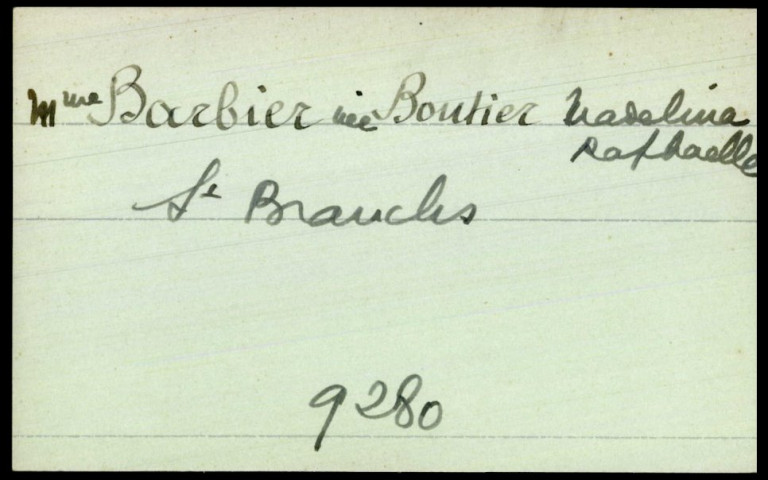 Mme Barbier née Boutier Madelina
Raphaelle
St Branchs
9280